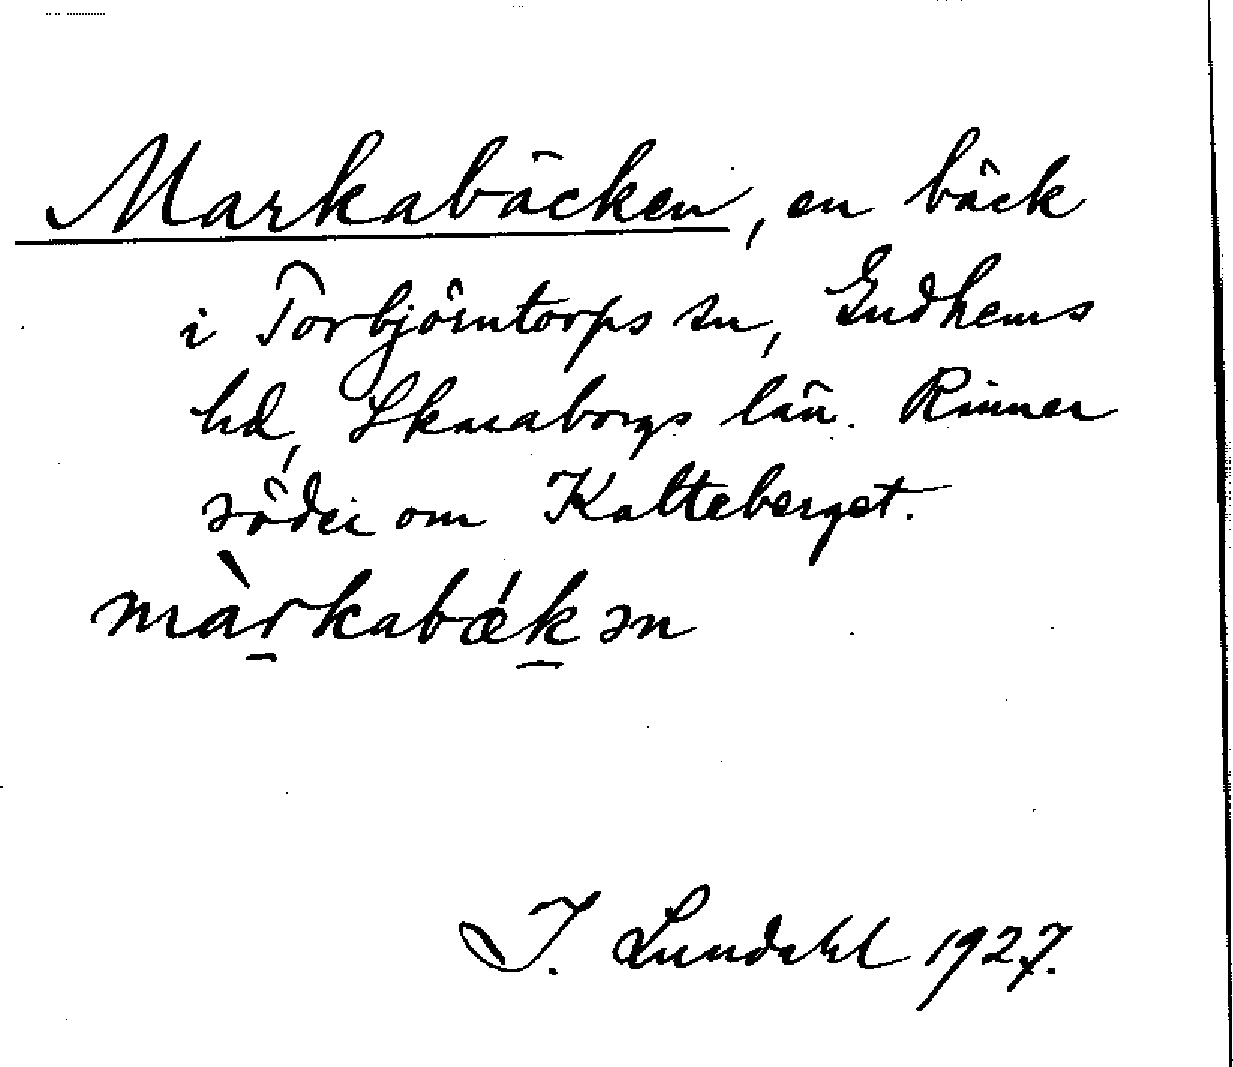 Markabäcken, en bäck
i Torbjörntorps sn, Gudhems
hd, Skaraborgs län. Rinner
söder om Kalteberget.
màr̲kabǽk̲ən
I. Lundahl 1927.